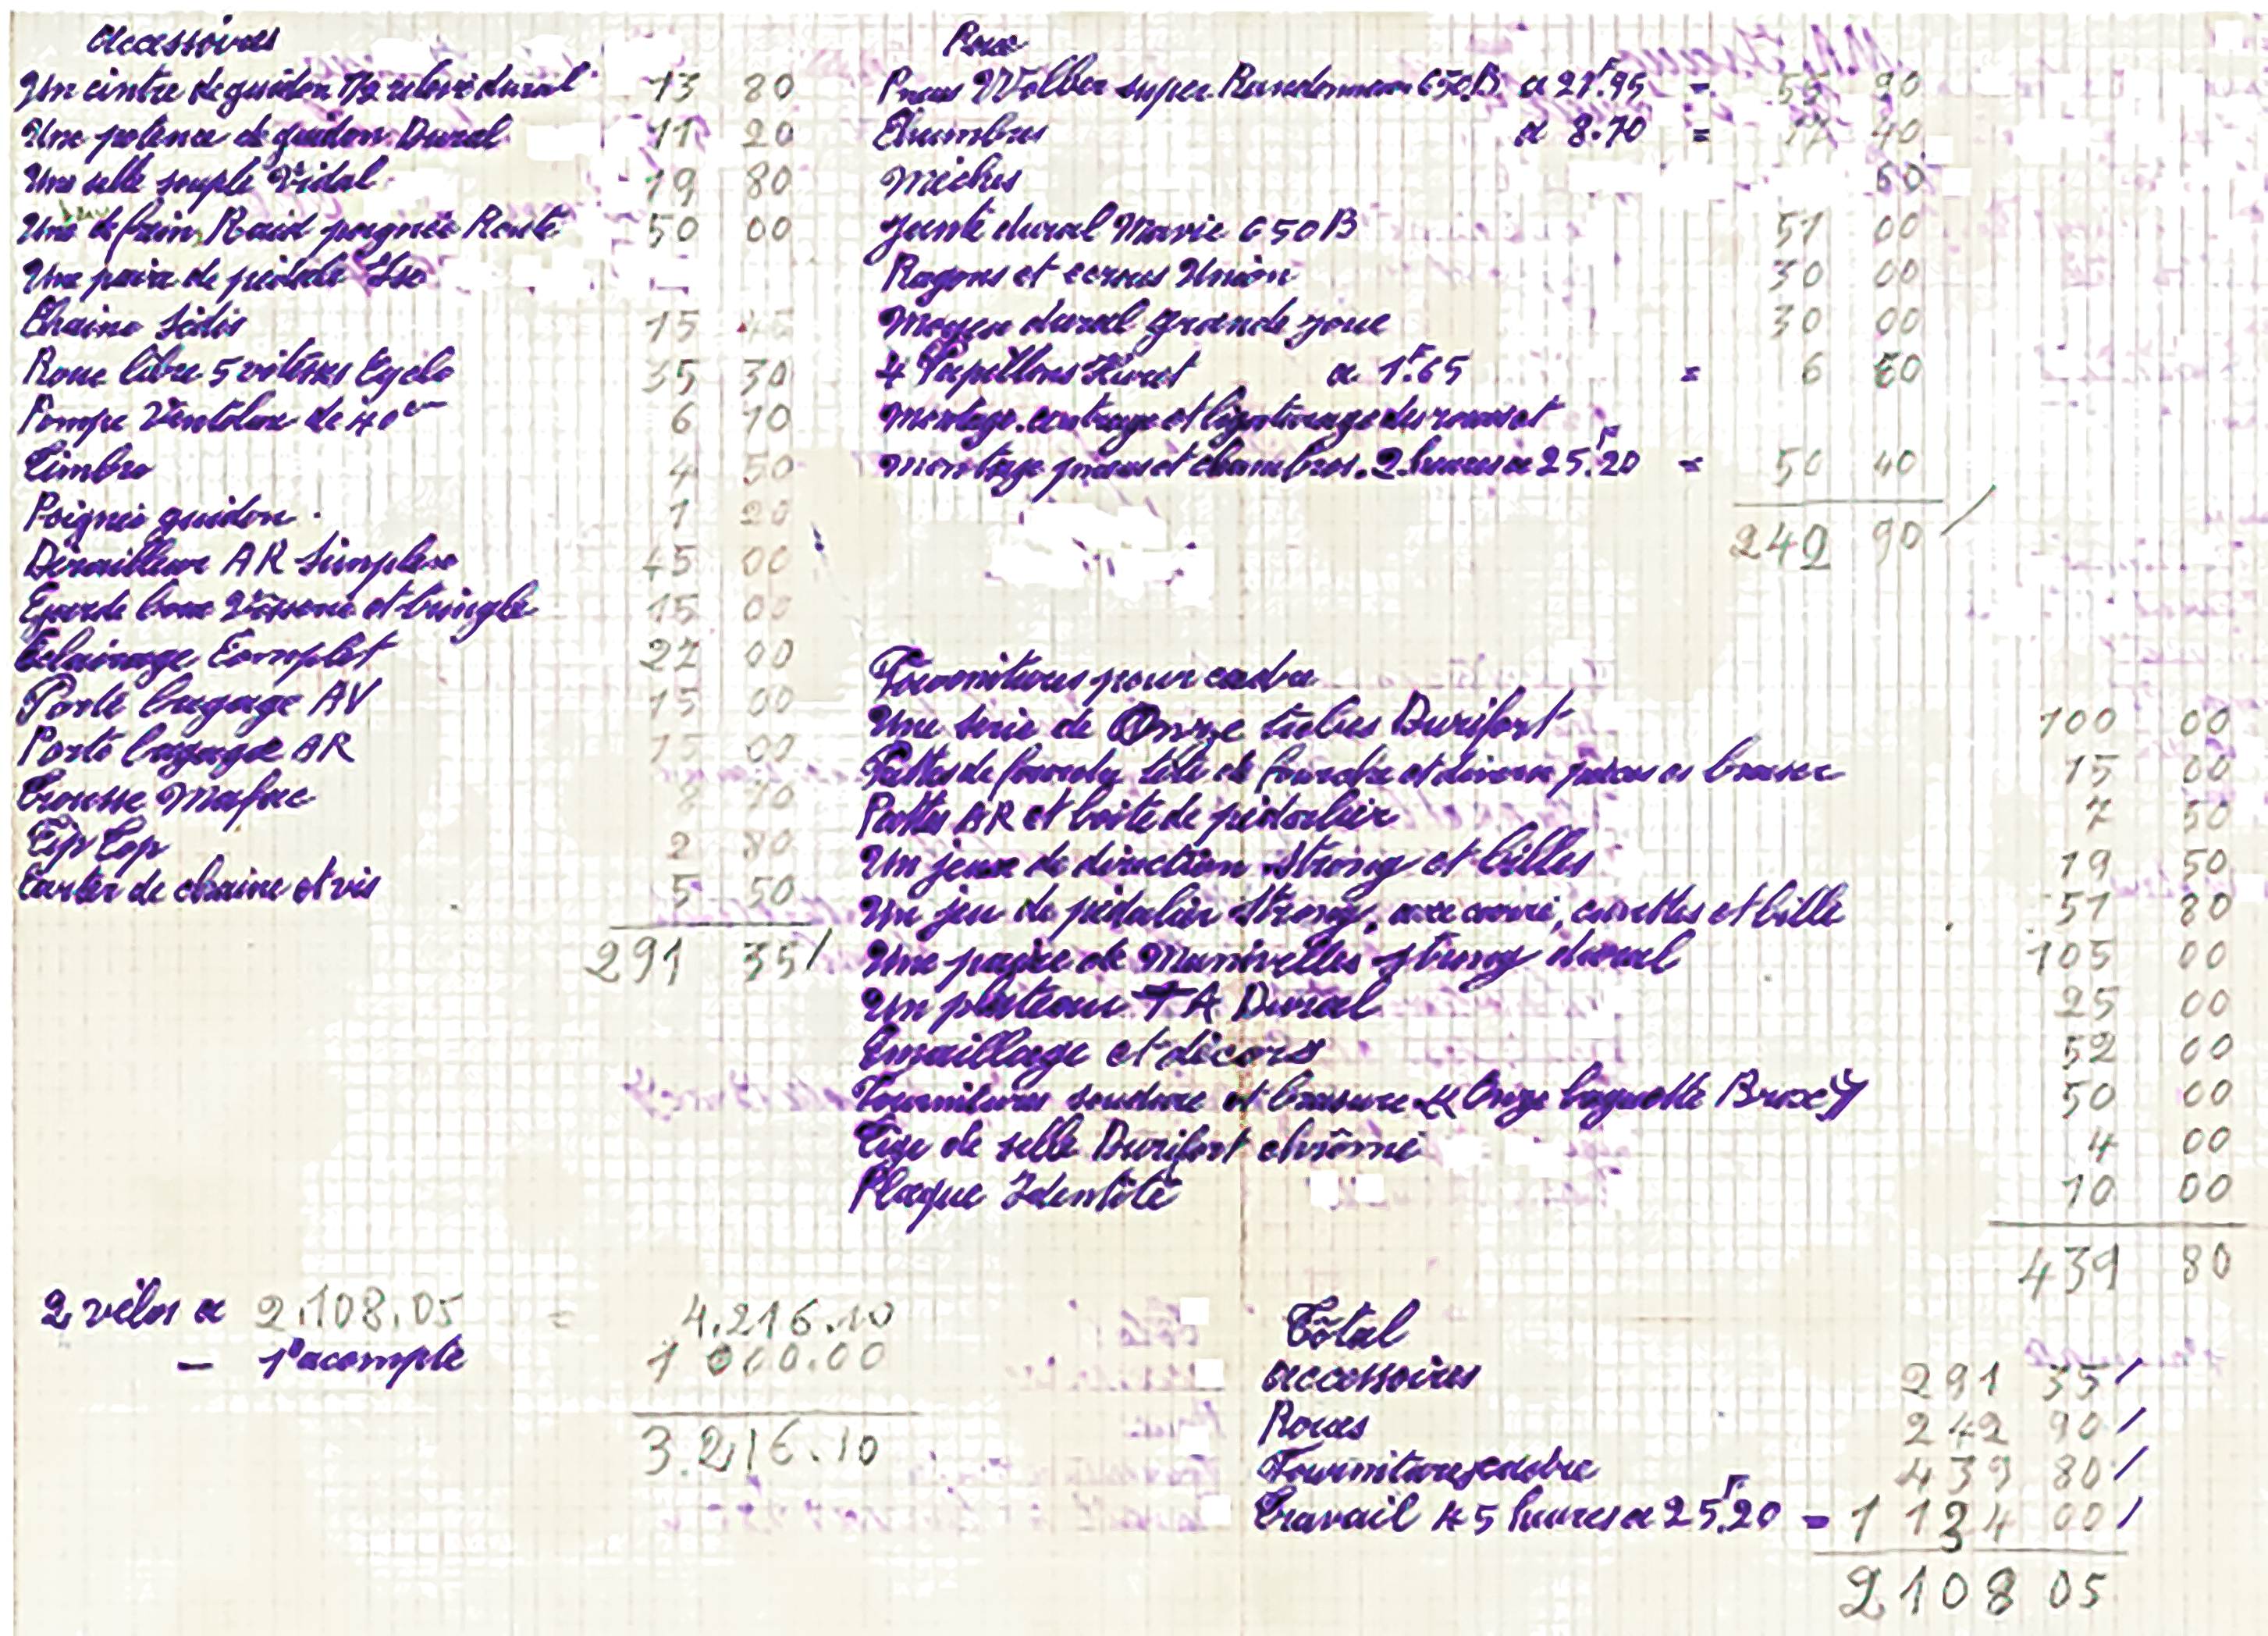 accessoires
Un cintre de guidon 1/2 relevé dural 13 80
Une potence de guidon Dural 11 20
Une selle souple Vidal 19 80
Une de frein Raid poignée Route 50 00
Une paire de pédale Lso
Chaine Sedis 15 45
Roue libre 5 vitesses Cyclo 35 30
Pompe Ventoux de 40 cm 6 70
Timbre 4 50
Poignée guidon 1 20
Dérailleur AR Simplex 45 00
Garde boue et tringle 15 00
Eclairage Complet 22 00
Porte bagage AV 15 00
Porte bagage AR 15 00
Trousse Mafac
Tip Top 2 80
Carter de chaine et vis 5 50
291 35
Roue
Pneus Wolber super Randonneur 650B a 27F.95 = 55 90
Chambres a 8.70 = 17 40
Méches 60
Jante dural Mavic 650B 51 00
Rayons et ecrous Union 30 00
Moyeu dural grande joue 30 00
4 Papillons Huret a 1F.65 = 6 60
montage. centrage et ligaturage des roues et
montage pneus et chambres. 2 heures a 25F.20 = 50 40
242 90
Fournitures pour cadre
Une serie de Onze tubes Durifort 100 00
Pattes de fourche tête de fourche et divers pièces a braser 15 00
Pattes AR et boite de pédalier 7 50
Un jeux de direction Strong et billes 19 50
Un jeu de pédalier Strong, axe carré, cuvettes et bille 51 80
Une paire de Manivelles Strong dural 105 00
Un plateau TA Dural 25 00
Emaillage et décors 52 00
Fournitures soudure et brasure « Onze baguette Brox » 50 00
Tige de selle Durifort chrômé 4 00
Plaque Identité 10 00
439 80
2 vélos a 2.108.05 = 4.216.10
— 1° acompte 1 000.00
3.216.10
Tôtal
accessoires 291 35
Roues 242 90
Fournitures cadre 439 80
Travail 45 heures a 25F.20 = 1 134 00
2108 05